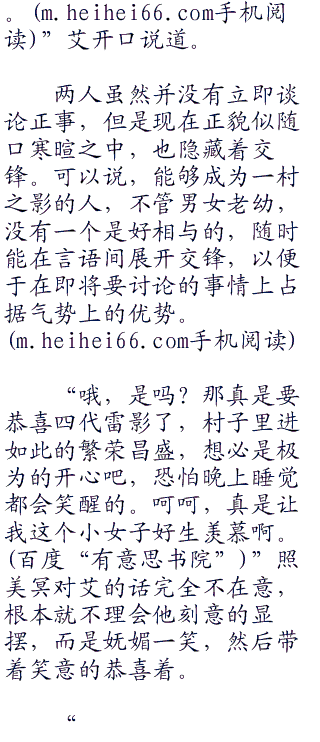 。(m.heihei66.com手机阅
读)”艾开口说道。
两人虽然并没有立即谈
论正事，但是现在正貌似随
口寒暄之中，也隐藏着交
锋。可以说，能够成为一村
之影的人，不管男女老幼，
没有一个是好相与的，随时
能在言语间展开交锋，以便
于在即将要讨论的事情上占
据气势上的优势。
(m.heihei66.com手机阅读)
“哦，是吗？那真是要
恭喜四代雷影了，村子里进
如此的繁荣昌盛，想必是极
为的开心吧，恐怕晚上睡觉
都会笑醒的。呵呵，真是让
我这个小女子好生羡慕啊。
(百度“有意思书院”)”照
美冥对艾的话完全不在意，
根本就不理会他刻意的显
摆，而是妩媚一笑，然后带
着笑意的恭喜着。
“